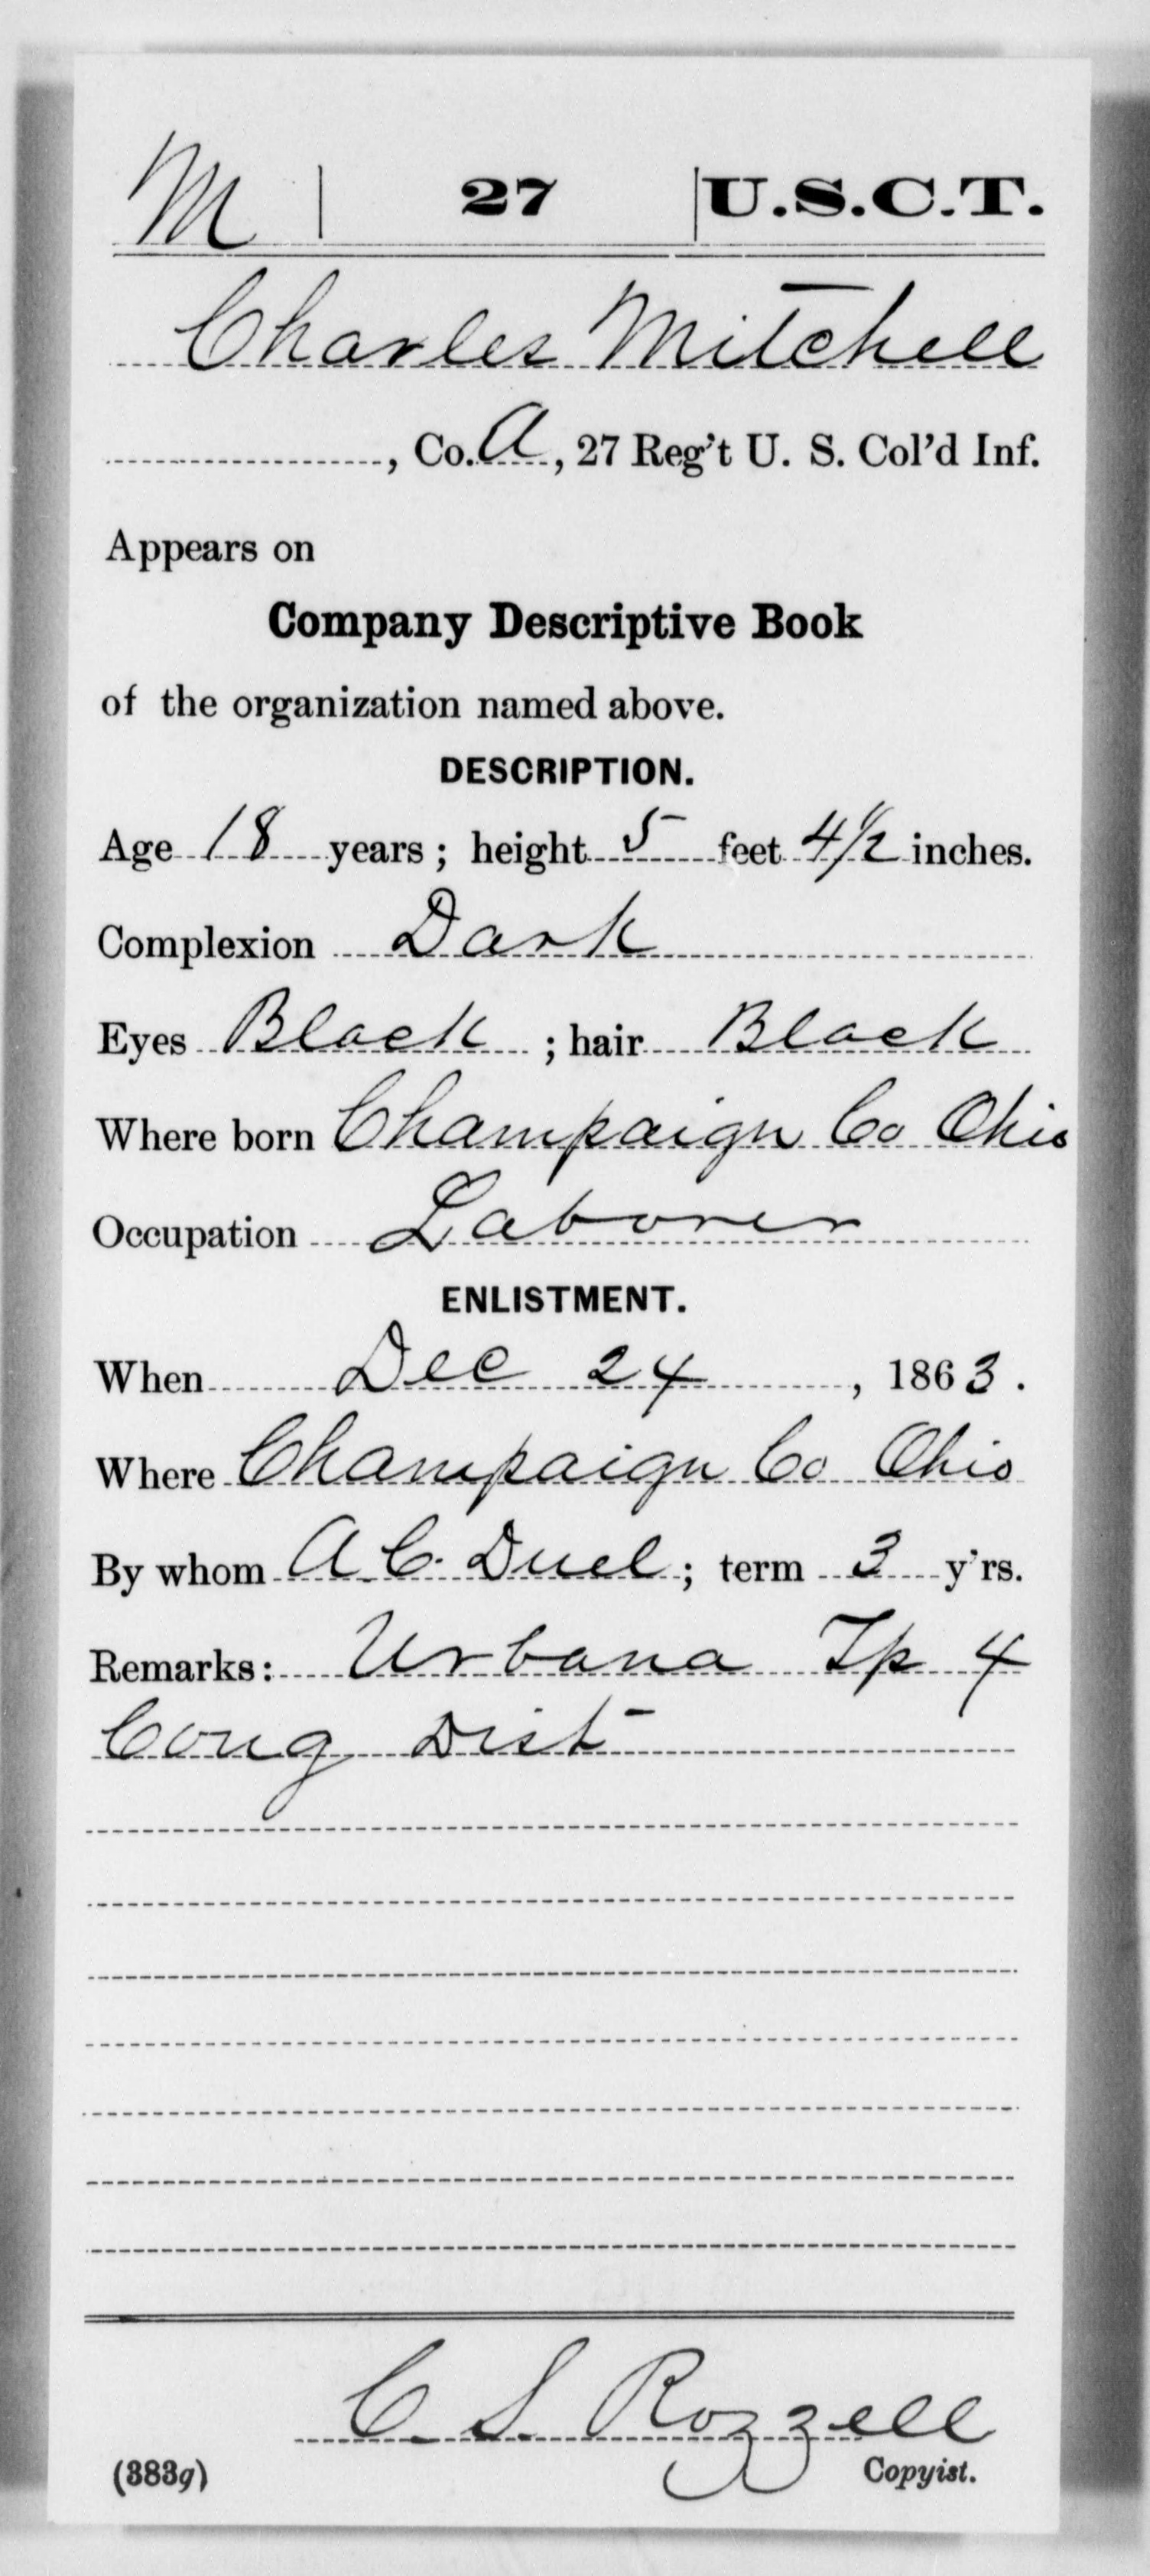 M | 27 | U.S.C.T.
Charles Mitchell
, Co. A, 27 Reg't U. S. Col'd Inf.
Appears on
Company Descriptive Book
of the organization named above.
DESCRIPTION.
Age 18 years; height 5 feet 4 1/2 inches.
Complexion Dark
Eyes Black; hair Black
Where born Champaign Co Ohio
Occupation Laborer
ENLISTMENT.
When Dec 24, 1863.
Where Champaign Co Ohio
By whom A. C. Duel; term 3 y'rs.
Remarks: Urbana Tp 4
Cong Dist
C. S. Rozzell
(383g) Copyist.